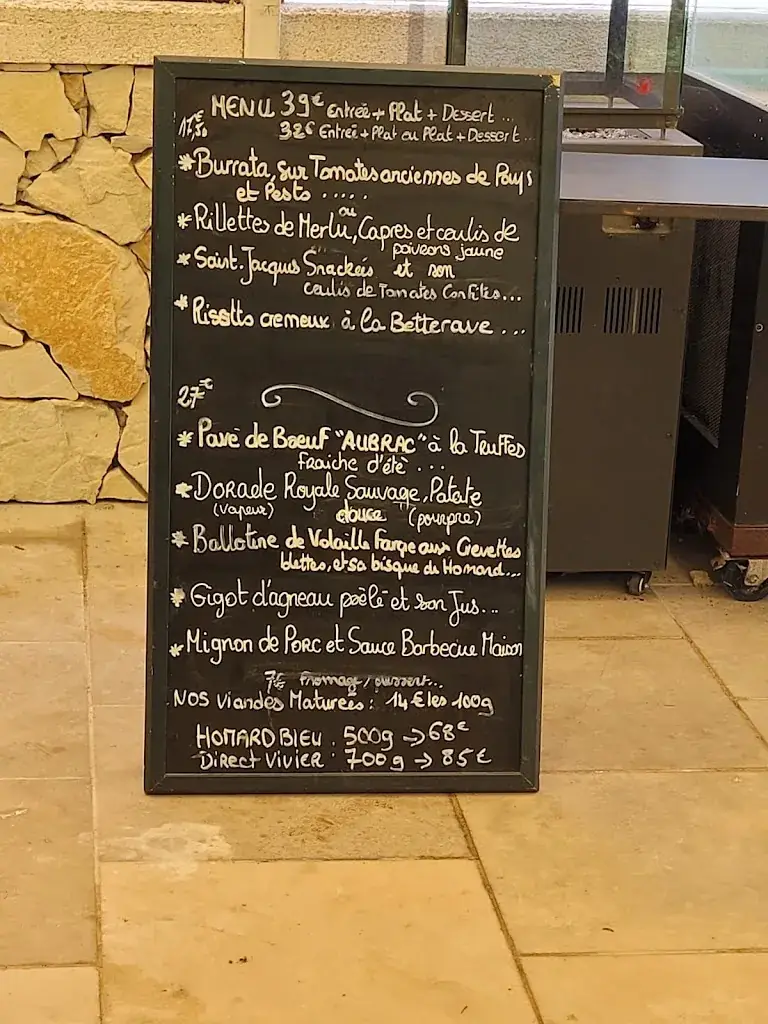 MENU 39€ Entrée + Plat + Dessert ...
32€ Entrée + Plat ou Plat + Dessert ...
17€,50
* Burrata, sur Tomates anciennes de Pays
et Pesto .....
ou
* Rillettes de Merlu, Capres et coulis de
poivrons jaune
* Saint. Jacques Snackées et son
coulis de Tomates Confites...
* Risotto cremeux à la Betterave ...
27€
* Pavé de Boeuf "AUBRAC" à la Truffes
fraiche d'été ...
* Dorade Royale Sauvage, Patate
(vapeur) douce (pourpre)
* Ballotine de Volaille Farçe aux Crevettes
blettes, et sa bisque de Homard...
* Gigot d'agneau poêlé et son Jus...
* Mignon de Porc et Sauce Barbecue Maison
7€ Fromage / Dessert...
Nos Viandes Maturées : 14€ les 100g
HOMARD BLEU : 500g → 68€
Direct Vivier : 700g → 85€